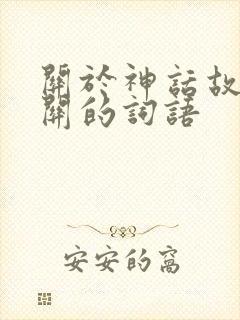 關於神話故
關的詞語
安安的窩